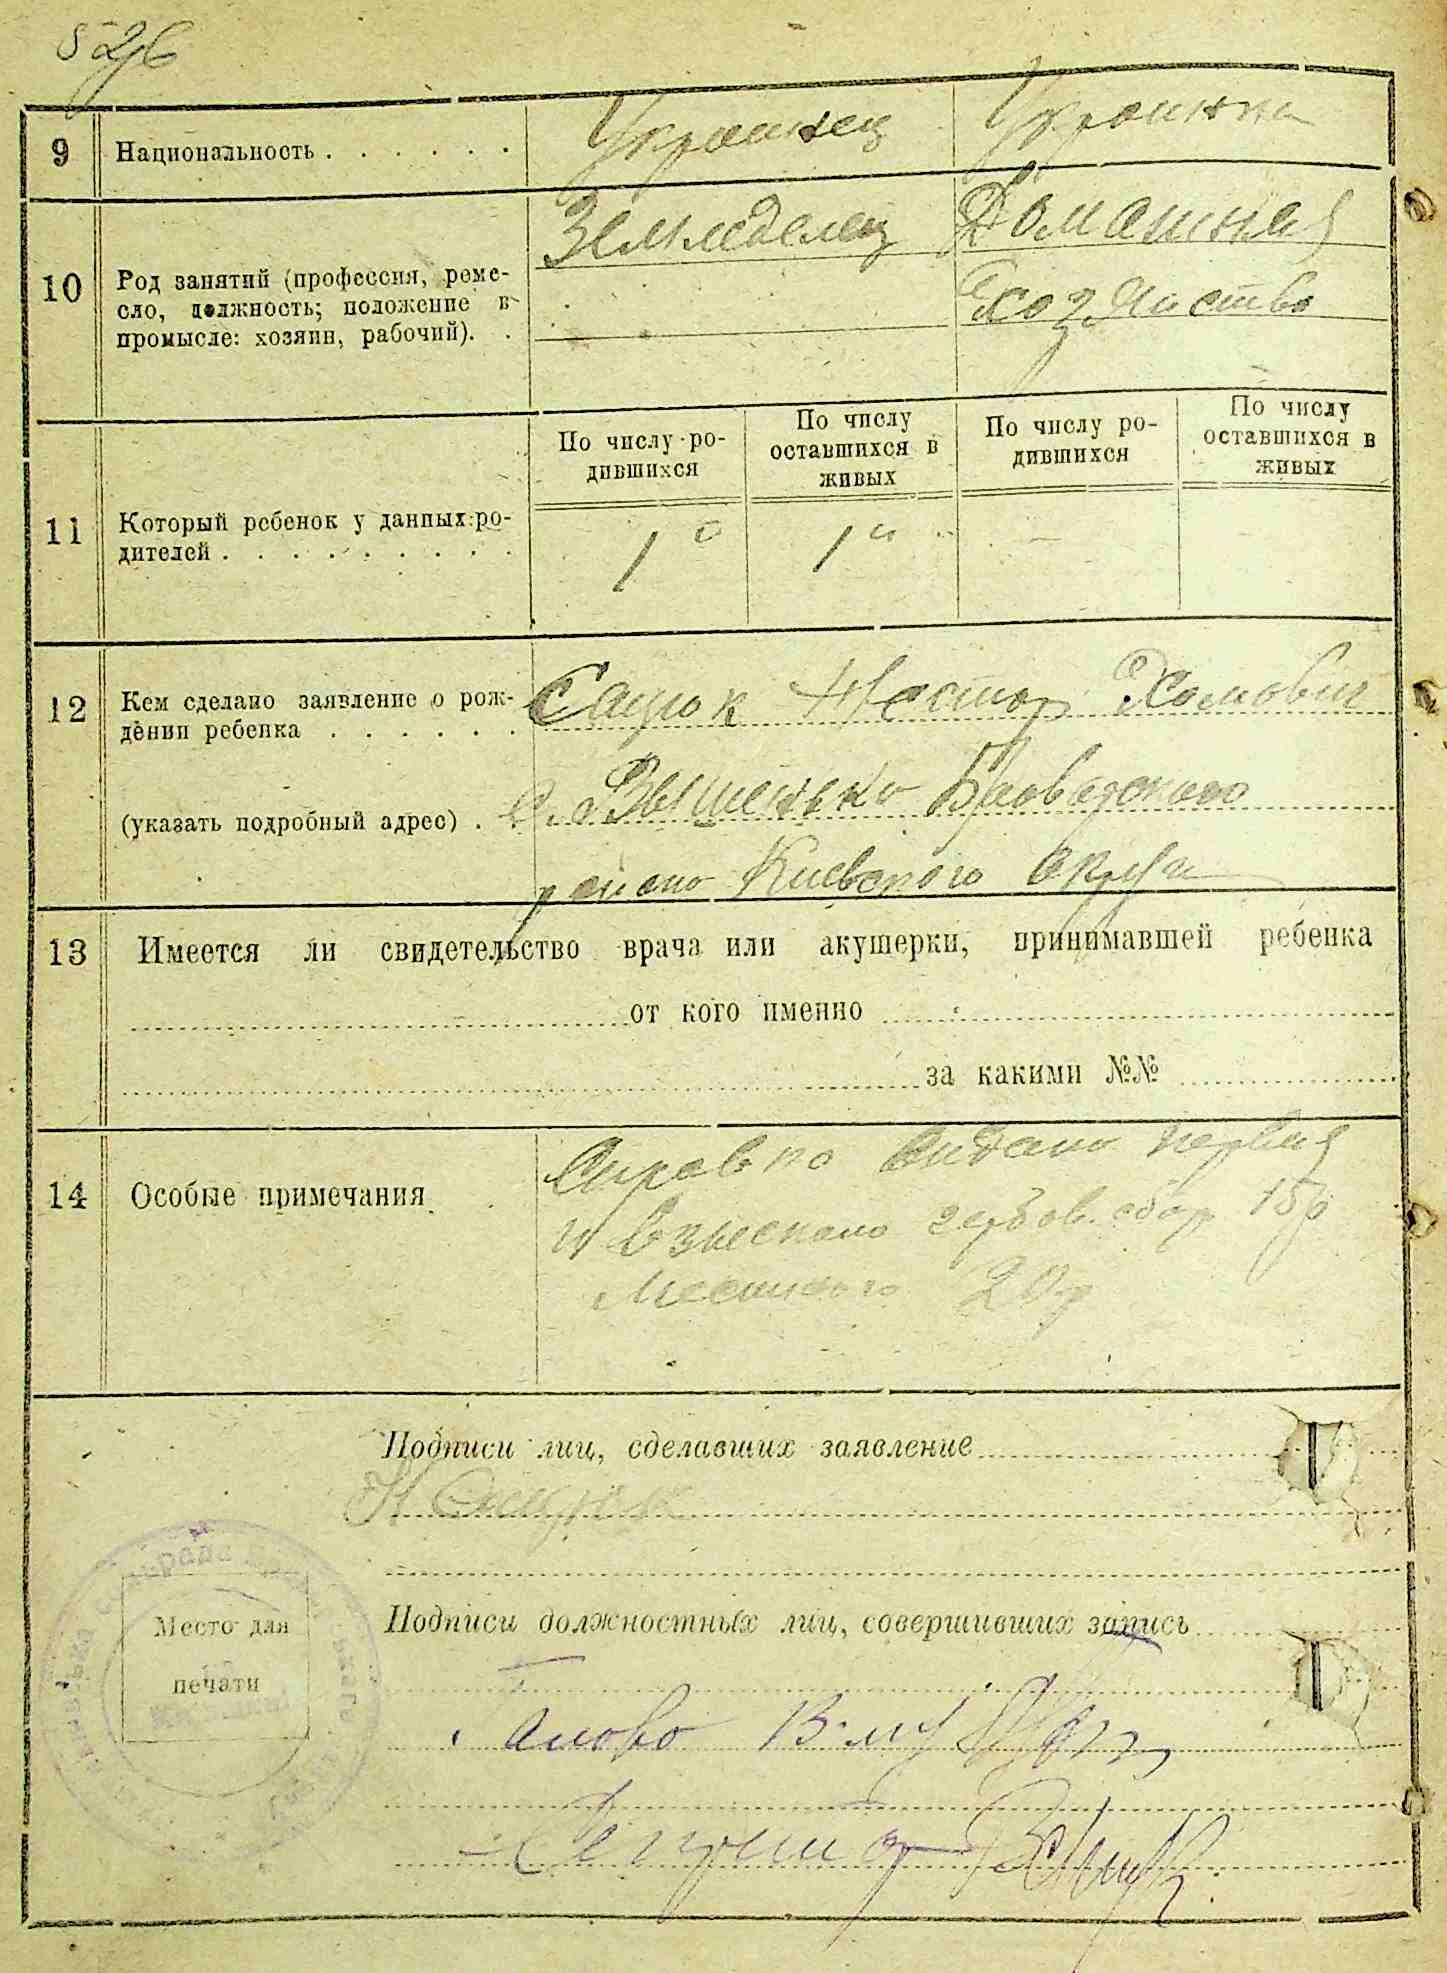 526
9 Национальность . . . . . . Украинец Украинка
10 Род занятий (профессия, реме-
сло, должность; положение в
промысле: хозяин, рабочий). .
Земледелец Домашная
хозяйство
11 Который ребенок у данных ро-
дителей . . . . . . . . .
По числу ро-
дившихся
По числу
оставшихся в
живых
По числу ро-
дившихся
По числу
оставшихся в
живых
1й 1й
12 Кем сделано заявление о рож-
дении ребенка . . . . . .
(указать подробный адрес) .
Сацюк Нестор Хомович
с. Вышенько Броварского
района Киевского округи
13 Имеется ли свидетельство врача или акушерки, принимавшей ребенка
от кого именно
за какими №№
14 Особые примечания
Справка видана первая
и взыскано гербов. сбор 15р
Местного 20р
Подписи лиц, сделавших заявление
Н Сацюк
Подписи должностных лиц, совершивших запись
Место для
печати
Голова